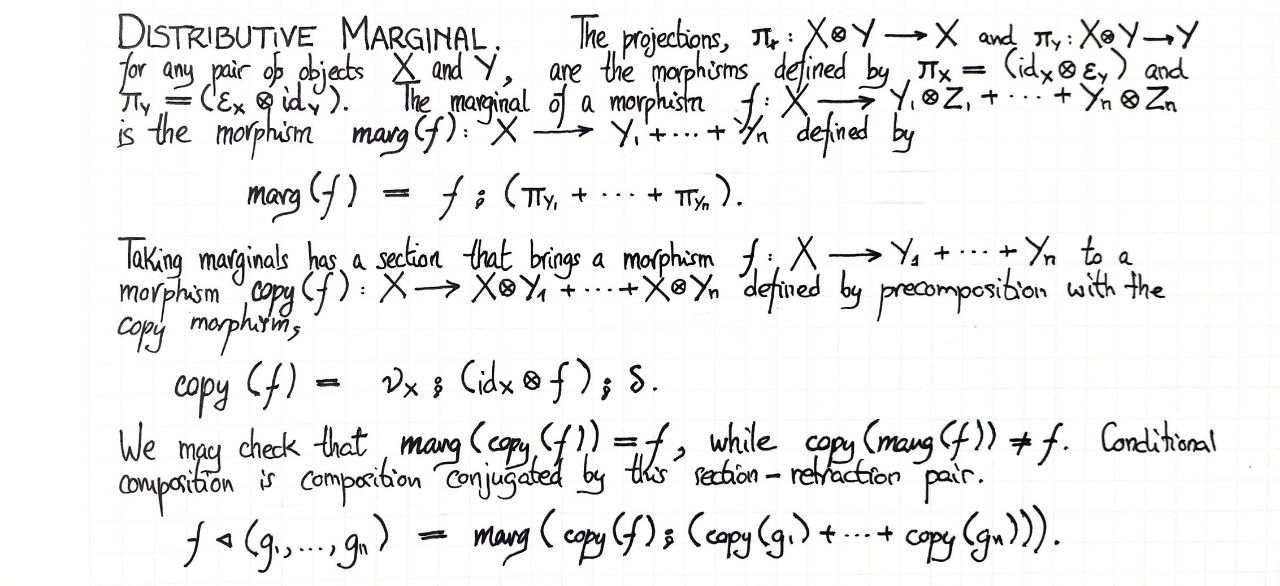 DISTRIBUTIVE MARGINAL. The projections, π_X : X⊗Y → X and π_Y : X⊗Y → Y
for any pair of objects X and Y, are the morphisms defined by π_X = (id_X ⊗ ε_Y) and
π_Y = (ε_X ⊗ id_Y). The marginal of a morphism f : X → Y_1⊗Z_1 + ··· + Y_n⊗Z_n
is the morphism marg(f) : X → Y_1 + ··· + Y_n defined by
marg(f) = f ; (π_{Y_1} + ··· + π_{Y_n}).
Taking marginals has a section that brings a morphism f : X → Y_1 + ··· + Y_n to a
morphism copy(f) : X → X⊗Y_1 + ··· + X⊗Y_n defined by precomposition with the
copy morphism,
copy(f) = ν_X ; (id_X ⊗ f) ; δ.
We may check that marg(copy(f)) = f, while copy(marg(f)) ≠ f. Conditional
composition is composition conjugated by this section-retraction pair.
f ◁ (g_1, ..., g_n) = marg(copy(f) ; (copy(g_1) + ··· + copy(g_n))).